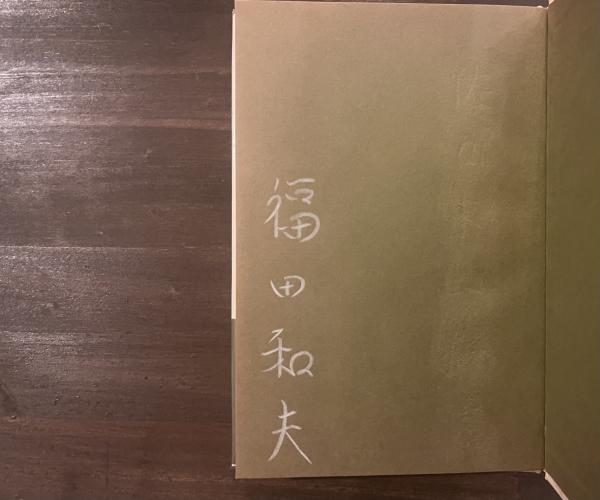 福田和夫